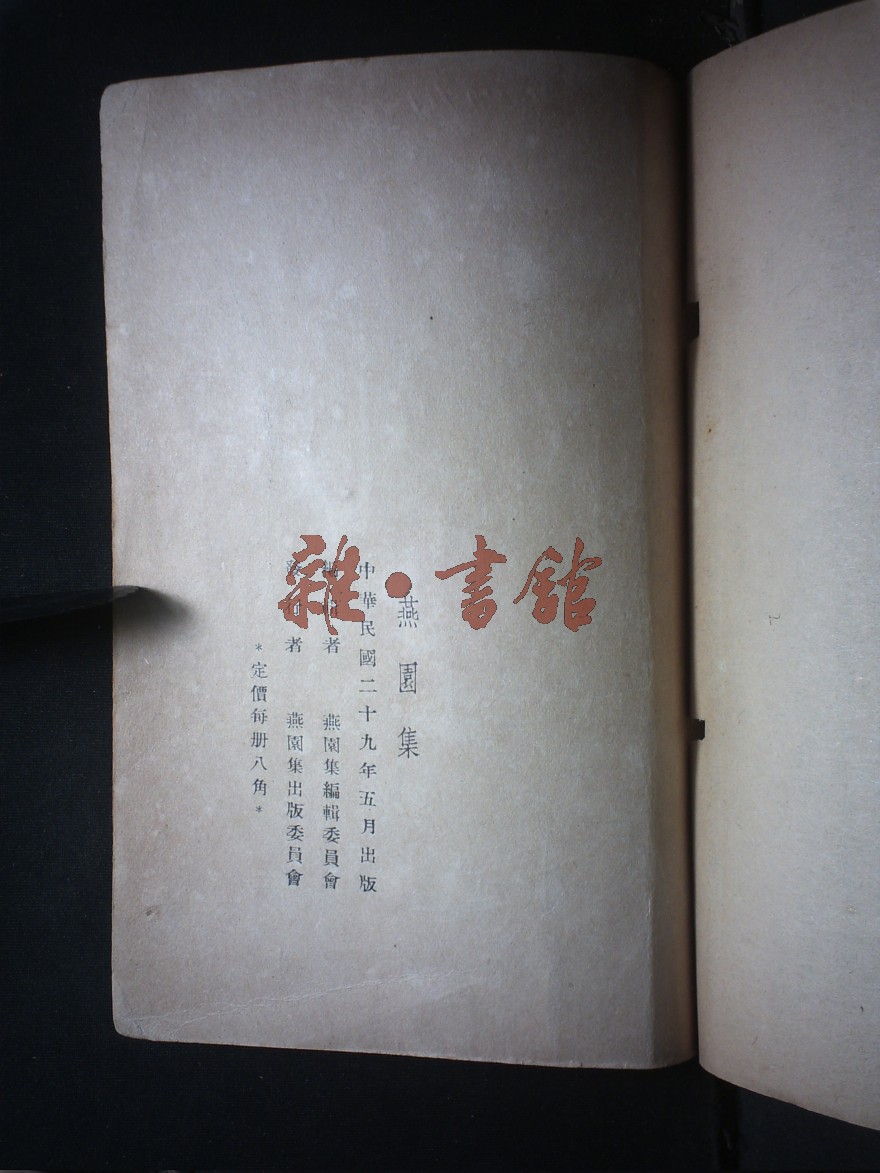 燕園集
中華民國二十九年五月出版
編輯者 燕園集編輯委員會
發行者 燕園集出版委員會
*定價每册八角*
雜·書館